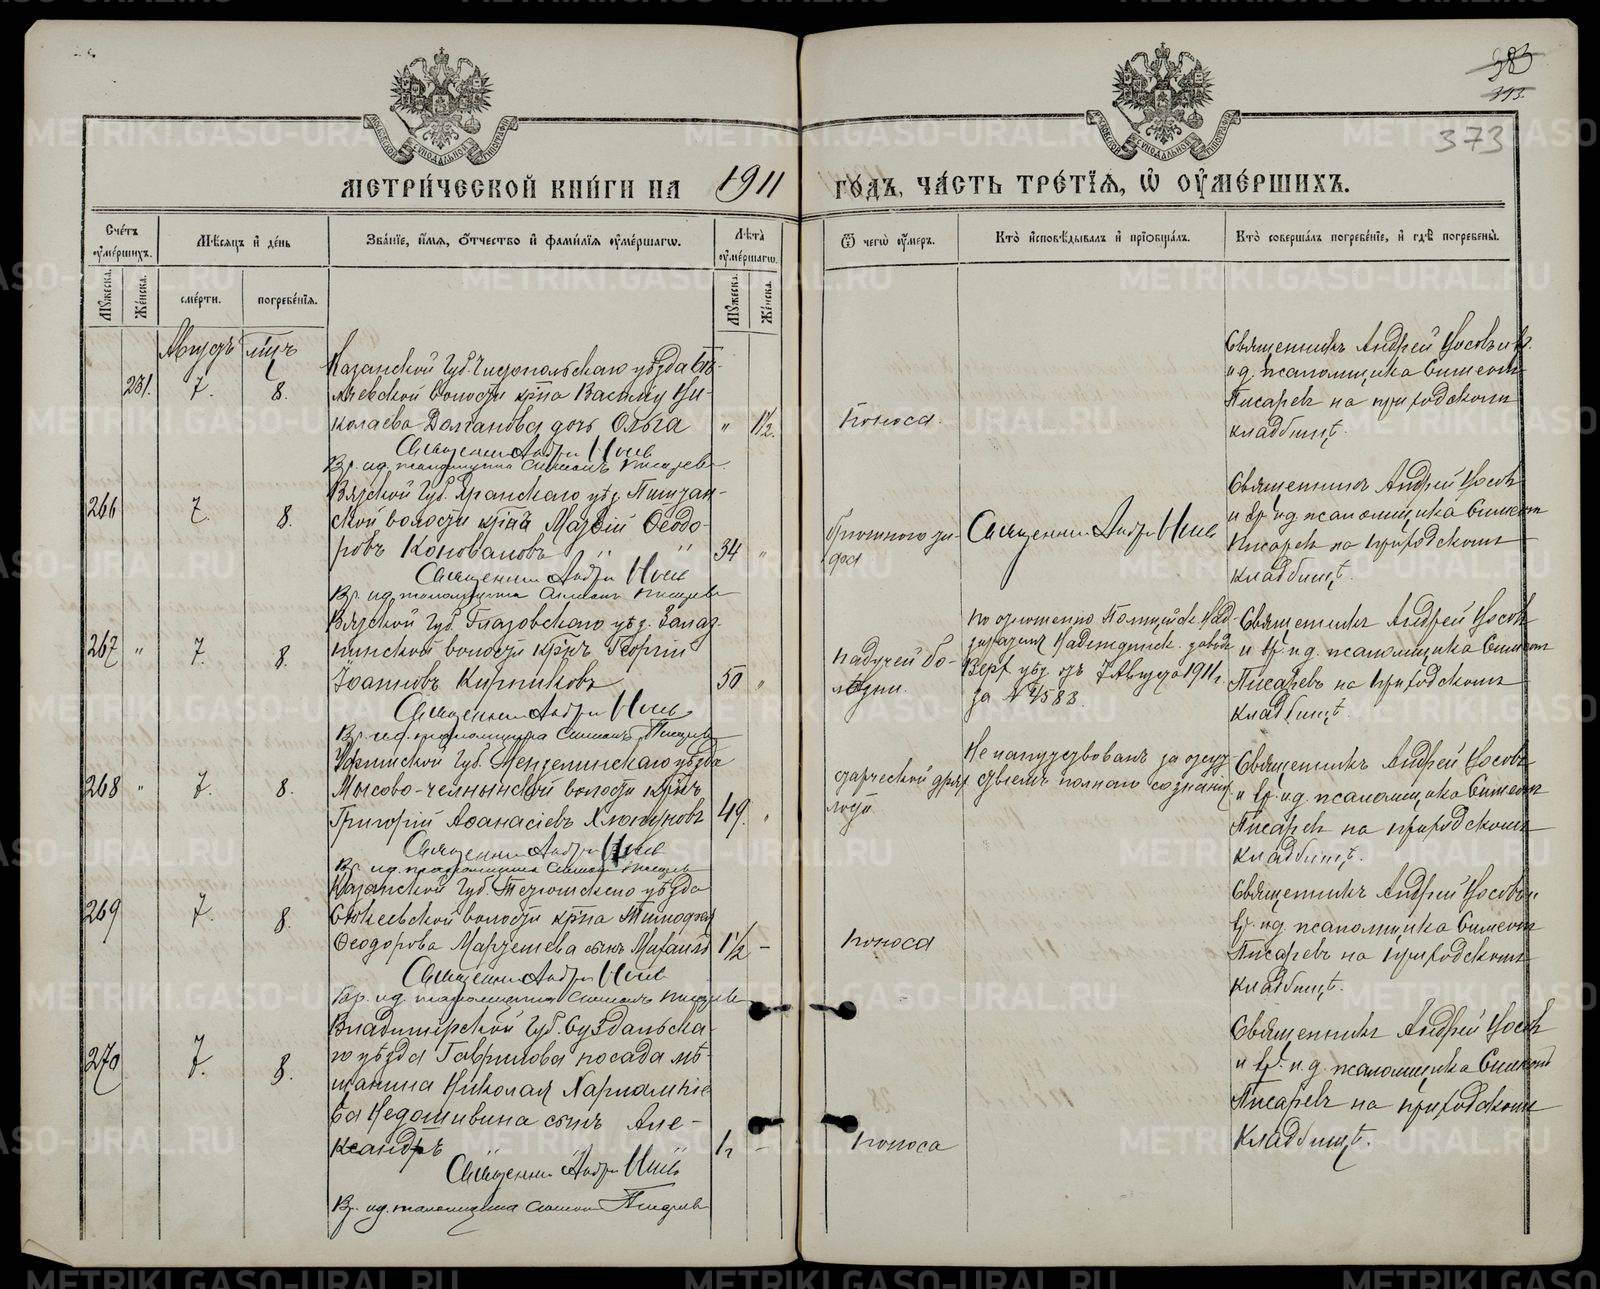 383
393.
373
МЕТРИ́ЧЕСКОЙ КНИ́ГИ НА 1911 ГО́ДЪ, ЧА́СТЬ ТРЕ́ТІѦ, Ѡ҆ ОУ҆МЕ́РШИХЪ.
Сче́тъ оу҆ме́ршихъ.
Мꙋжеска.
Же́нска.
Мѣ́сѧцъ и҆ де́нь
сме́рти.
погребе́нїѧ.
Зва́нїе, и҆́мѧ, ѻ҆́тчество и҆ фами́лїѧ оу҆ме́ршагѡ.
Лѣ́та оу҆ме́ршагѡ.
Мꙋжеска.
Же́нска.
Ѿ чегѡ̀ оу҆́меръ.
Кто̀ и҆сповѣ́дывалъ и҆ прїѻбща́лъ.
Кто̀ соверша́лъ погребе́нїе, и҆ гдѣ̀ погребены̀.
Августъ мцъ
231. 7. 8.
Казанской Губ. Чистопольскаго уѣзда
волости кр-на Василія Ни-
колаева Долганова дочь Ольга " 1½
Священникъ Андрей Носовъ
Вр. ид. псаломщика Симеонъ Писаревъ
Поноса.
Священникъ Андрей Носовъ и вр.
и.д. псаломщика Симеонъ
Писаревъ на приходскомъ
кладбищѣ.
266 7. 8.
Вятской Губ. Яранскаго уѣз. Пижан-
ской волости кр-нъ Матѳій Ѳеодо-
ровъ Коноваловъ 34 "
Священникъ Андрей Носовъ
Вр. ид. псаломщика Симеонъ Писаревъ
брюшного ти-
фа
Священникъ Андрей Носовъ
Священникъ Андрей Носовъ
и вр. и.д. псаломщика Симеонъ
Писаревъ на приходскомъ
кладбищѣ.
267 " 7. 8.
Вятской Губ. Глазовскаго уѣз.
волости кр-нъ Георгій
Іоанновъ Кирпиковъ 50 "
Священникъ Андрей Носовъ
Вр. ид. псаломщика Симеонъ Писаревъ
падучей бо-
лѣзни.
по отношенію Полицейск. Над
зирателя Надеждинск. завода
Верх. уѣз. отъ 7 Августа 1911 г.
за № 4583.
Священникъ Андрей Носовъ
и вр. и.д. псаломщика Симеонъ
Писаревъ на приходскомъ
кладбищѣ.
268 " 7. 8.
Уфимской Губ. Мензелинскаго уѣзда
Мысово-челнынской волости кр-нъ
Григорій Аѳанасіевъ Хлопуновъ 49. "
Священникъ Андрей Носовъ
Вр. ид. псаломщика Симеонъ Писаревъ
старческой дрях
лости
Не напутствованъ за отсут
ствіемъ полнаго сознанія
Священникъ Андрей Носовъ
и вр. и.д. псаломщика Симеонъ
Писаревъ на приходскомъ
кладбищѣ.
269 7. 8.
Казанской Губ. Тетюшскаго уѣзда
волости кр-на Тимоѳея
Ѳеодорова сынъ Михаилъ 1½ –
Священникъ Андрей Носовъ
Вр. ид. псаломщика Симеонъ Писаревъ
Поноса
Священникъ Андрей Носовъ и
вр. и.д. псаломщика Симеонъ
Писаревъ на приходскомъ
кладбищѣ.
270 7. 8.
Владимірской Губ. Суздальска-
го уѣзда Гаврилова посада мѣ-
щанина Николая Харлампіе
ва Недошивина сынъ Але-
ксандръ –
Священникъ Андрей Носовъ
Вр. ид. псаломщика Симеонъ Писаревъ
Поноса
Священникъ Андрей Носовъ
и вр. и.д. псаломщика Симеонъ
Писаревъ на приходскомъ
кладбищѣ.
METRIKI.GASO-URAL.RU